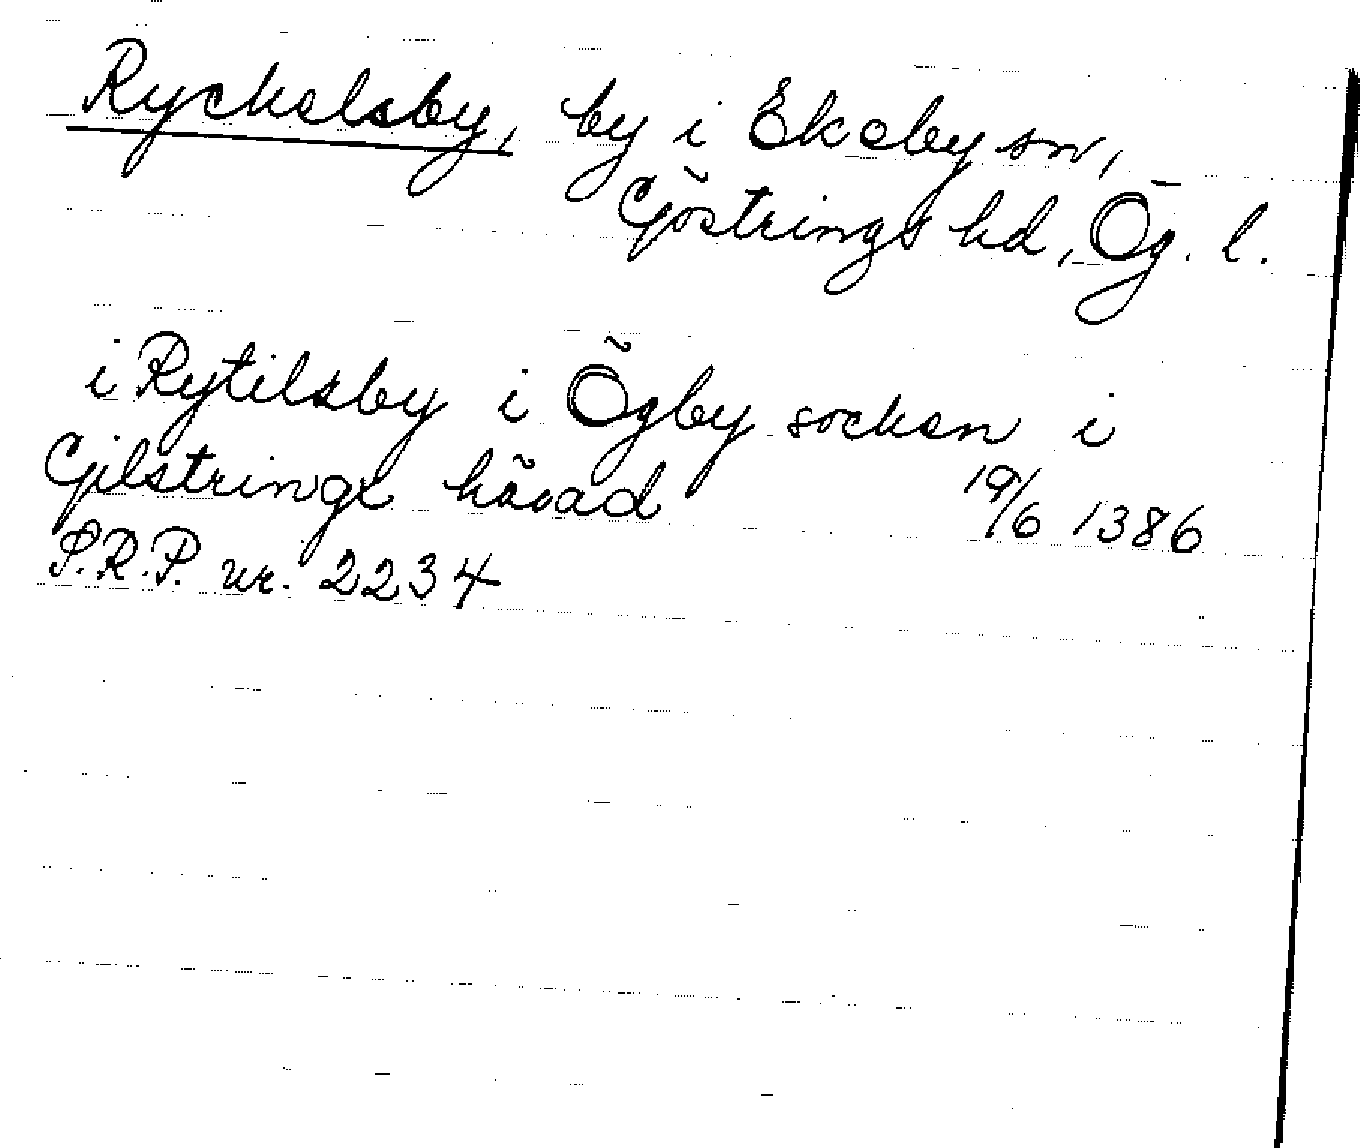 Ryckelsby, by i Ekeby sn,
Göstrings hd, Ög. l.
i Rytilsby i Ögby socken i
Gilstrings härad 19/6 1386
S.R.P. nr. 2234